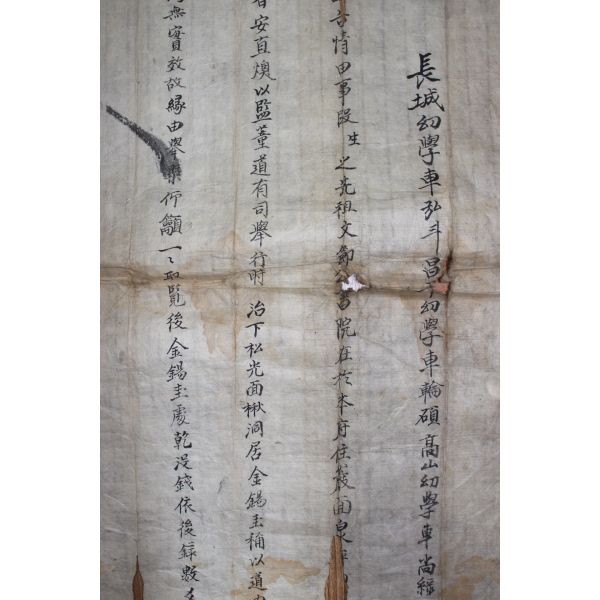 長城幼學車弘斗 昌平幼學車輪碩 高山幼學車尚
古情由事段生之先祖文節公書院在於本府住嵒面泉
安直煥以監董道有司擧行時 治下松光面楸洞居金錫圭稱以道內
無實效故緣由 仰籲一一取覽後金錫圭處乾沒錢依後錄數